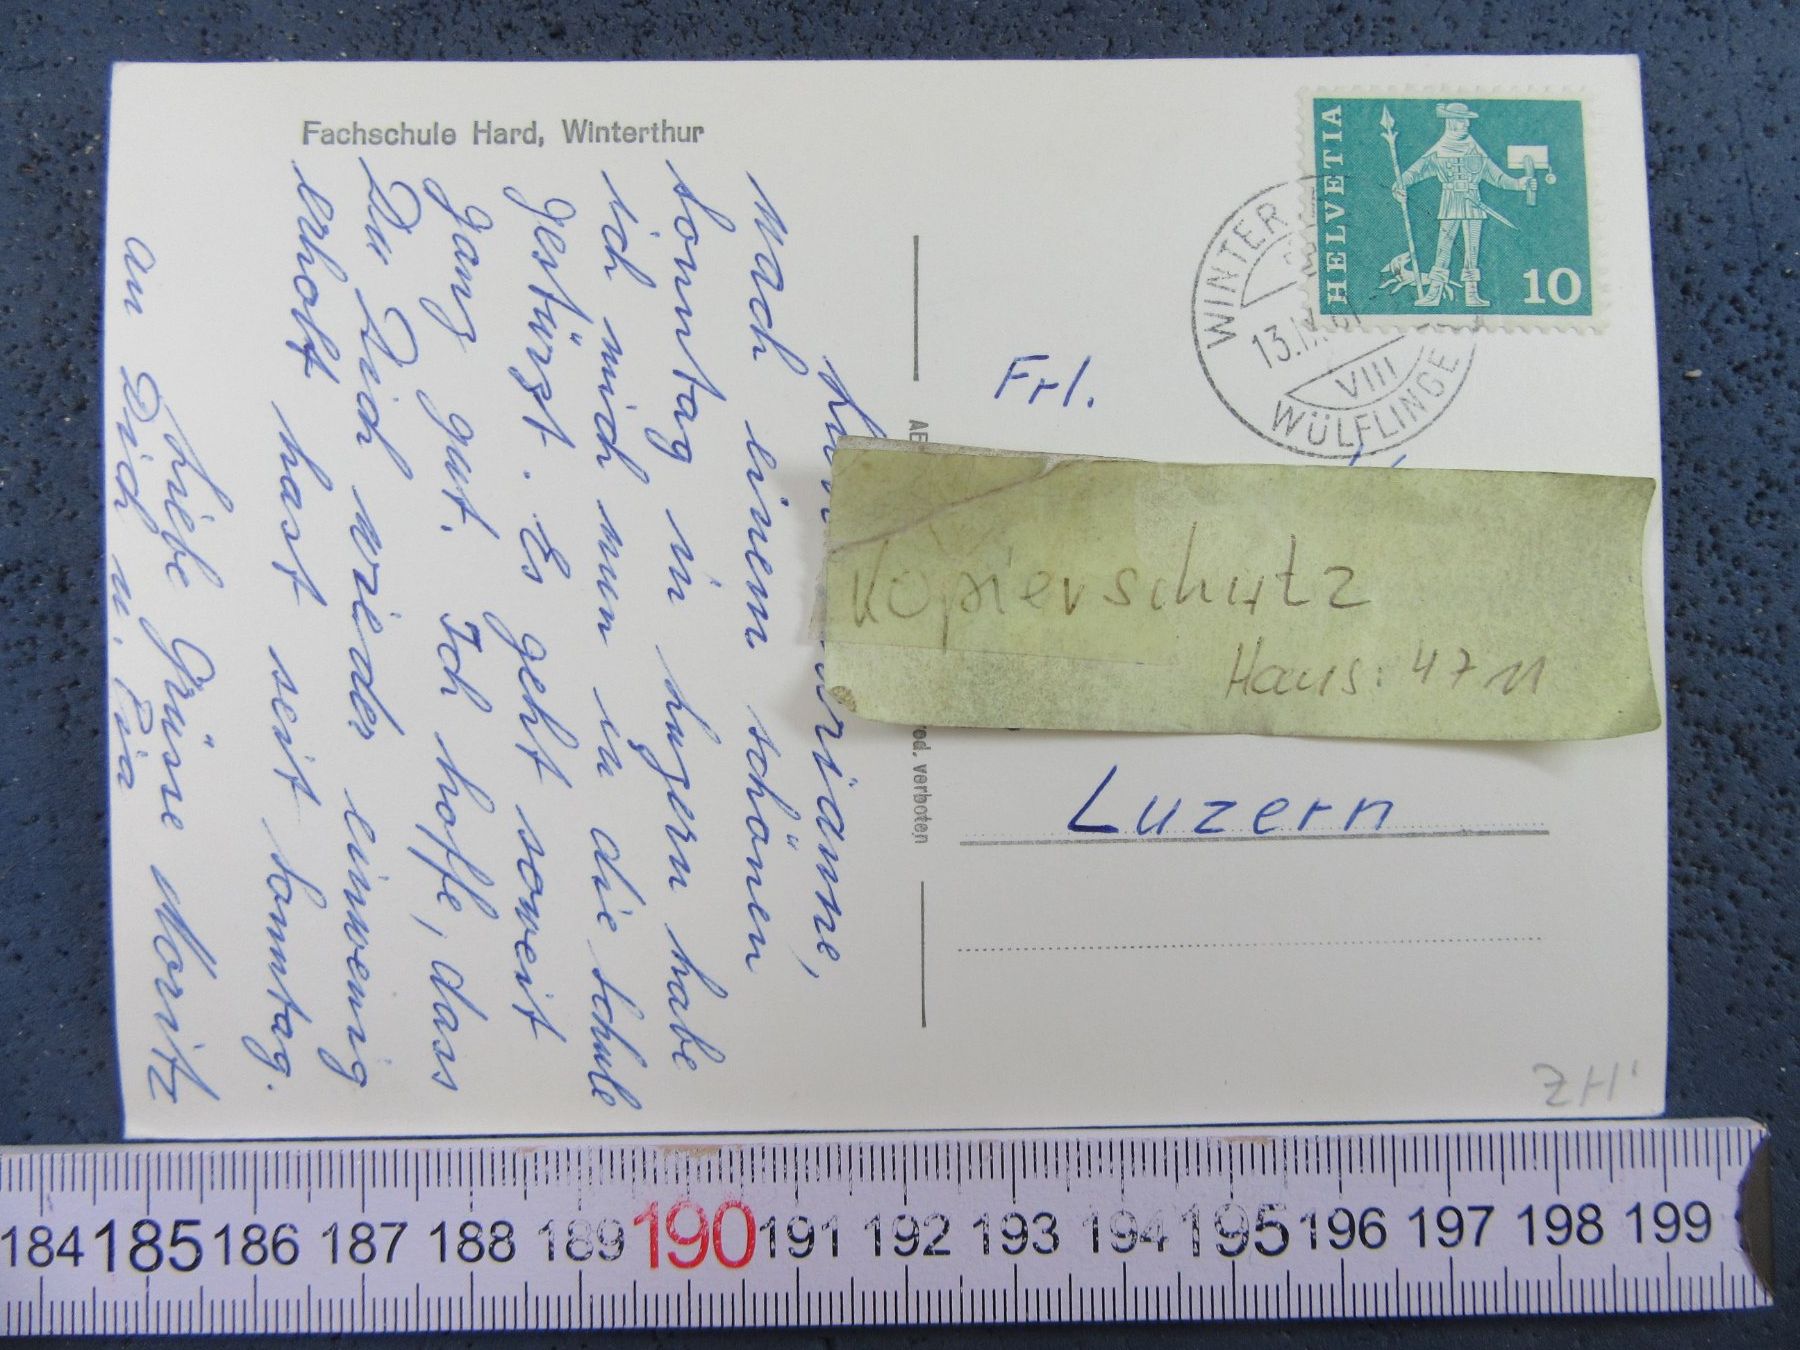 Fachschule Hard, Winterthur
HELVETIA
10
WINTER
13.IX.61
VIII
WÜLFLINGE
Frl.
Kopierschutz
Haus: 4711
Luzern
AE
verboten
ZH
Nach einem schönen
Sonntag in Luzern habe
ich mich nun in die Schule
gestürzt. Es geht soweit
ganz gut. Ich hoffe, dass
Du Dich wieder einwenig
erholt hast seit Sonntag.
Liebe Grüsse Moritz
an Dich u. Pia
184 185 186 187 188 189 190 191 192 193 194 195 196 197 198 199